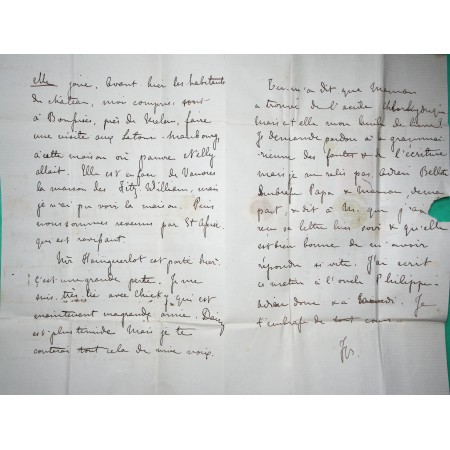 elle joie. Avant hier les habitants
du château, moi compris, sont
à Bonfriès, près de Melun, faire
une visite aux Latour-Maubourg,
à cette maison où pauvre Nelly
allait. Elle est en face de Vauvres
la maison des Fitz William, mais
je n'ai pu voir la maison. Puis
nous sommes revenus par St
qui est ravissant.
Mr Hainguerlot est parti hier.
C'est une grande perte. Je me
suis très lié avec Chicky, qui est
maintenant ma grande amie. Daisy
est plus timide mais je te
conterai tout cela de vive voix.
Tu m'a dit que Maman
a trouvé de l'acide
mais a t elle mon huile de
Je demande pardon à
des fautes & de l'écriture
mais je me relis pas. Adieu
Embrasse Papa & Maman de ma
part, & dit à que j'ai
reçu sa lettre hier soir & qu'elle
est bien bonne de m'avoir
répondu si vite. J'ai écrit
ce matin à l'oncle Philippe.
Adieu donc & à Samedi. Je
t'embrasse de tout cœur